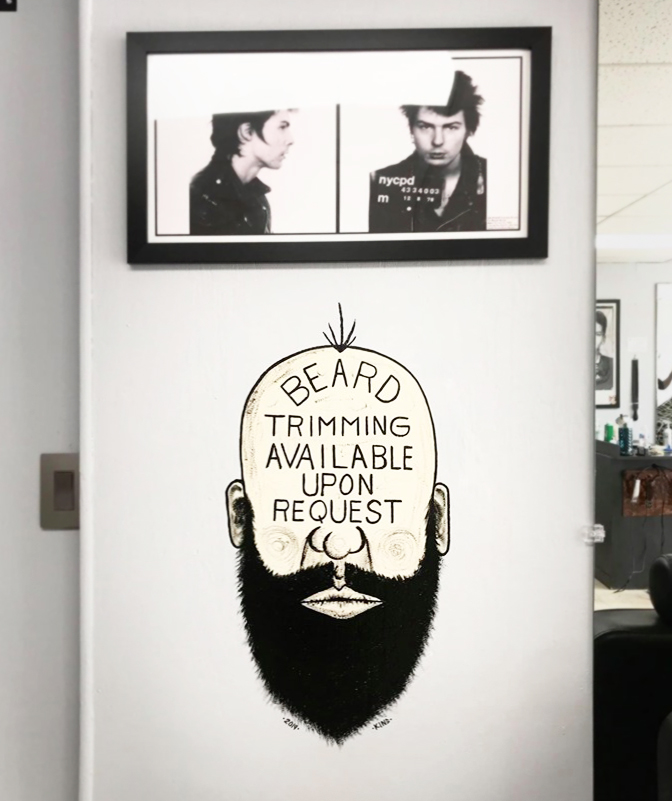 nycpd
4234003
m
12 8 78
BEARD
TRIMMING
AVAILABLE
UPON
REQUEST
-2014-
-KING-